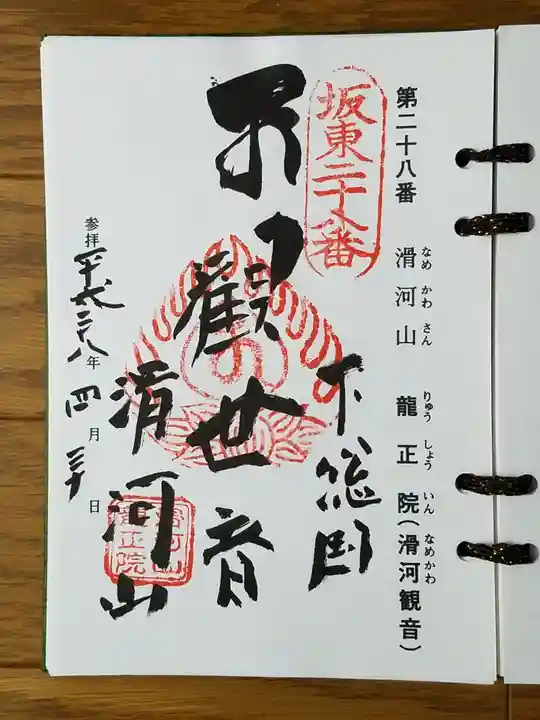 第二十八番 滑河山 龍正院(滑河観音)
なめ かわ さん りゅう しょう いん なめかわ
坂東二十八番
下総国
観世音
滑河山
滑河山
龍正院
参拝 平成二十八年 四月 三十日